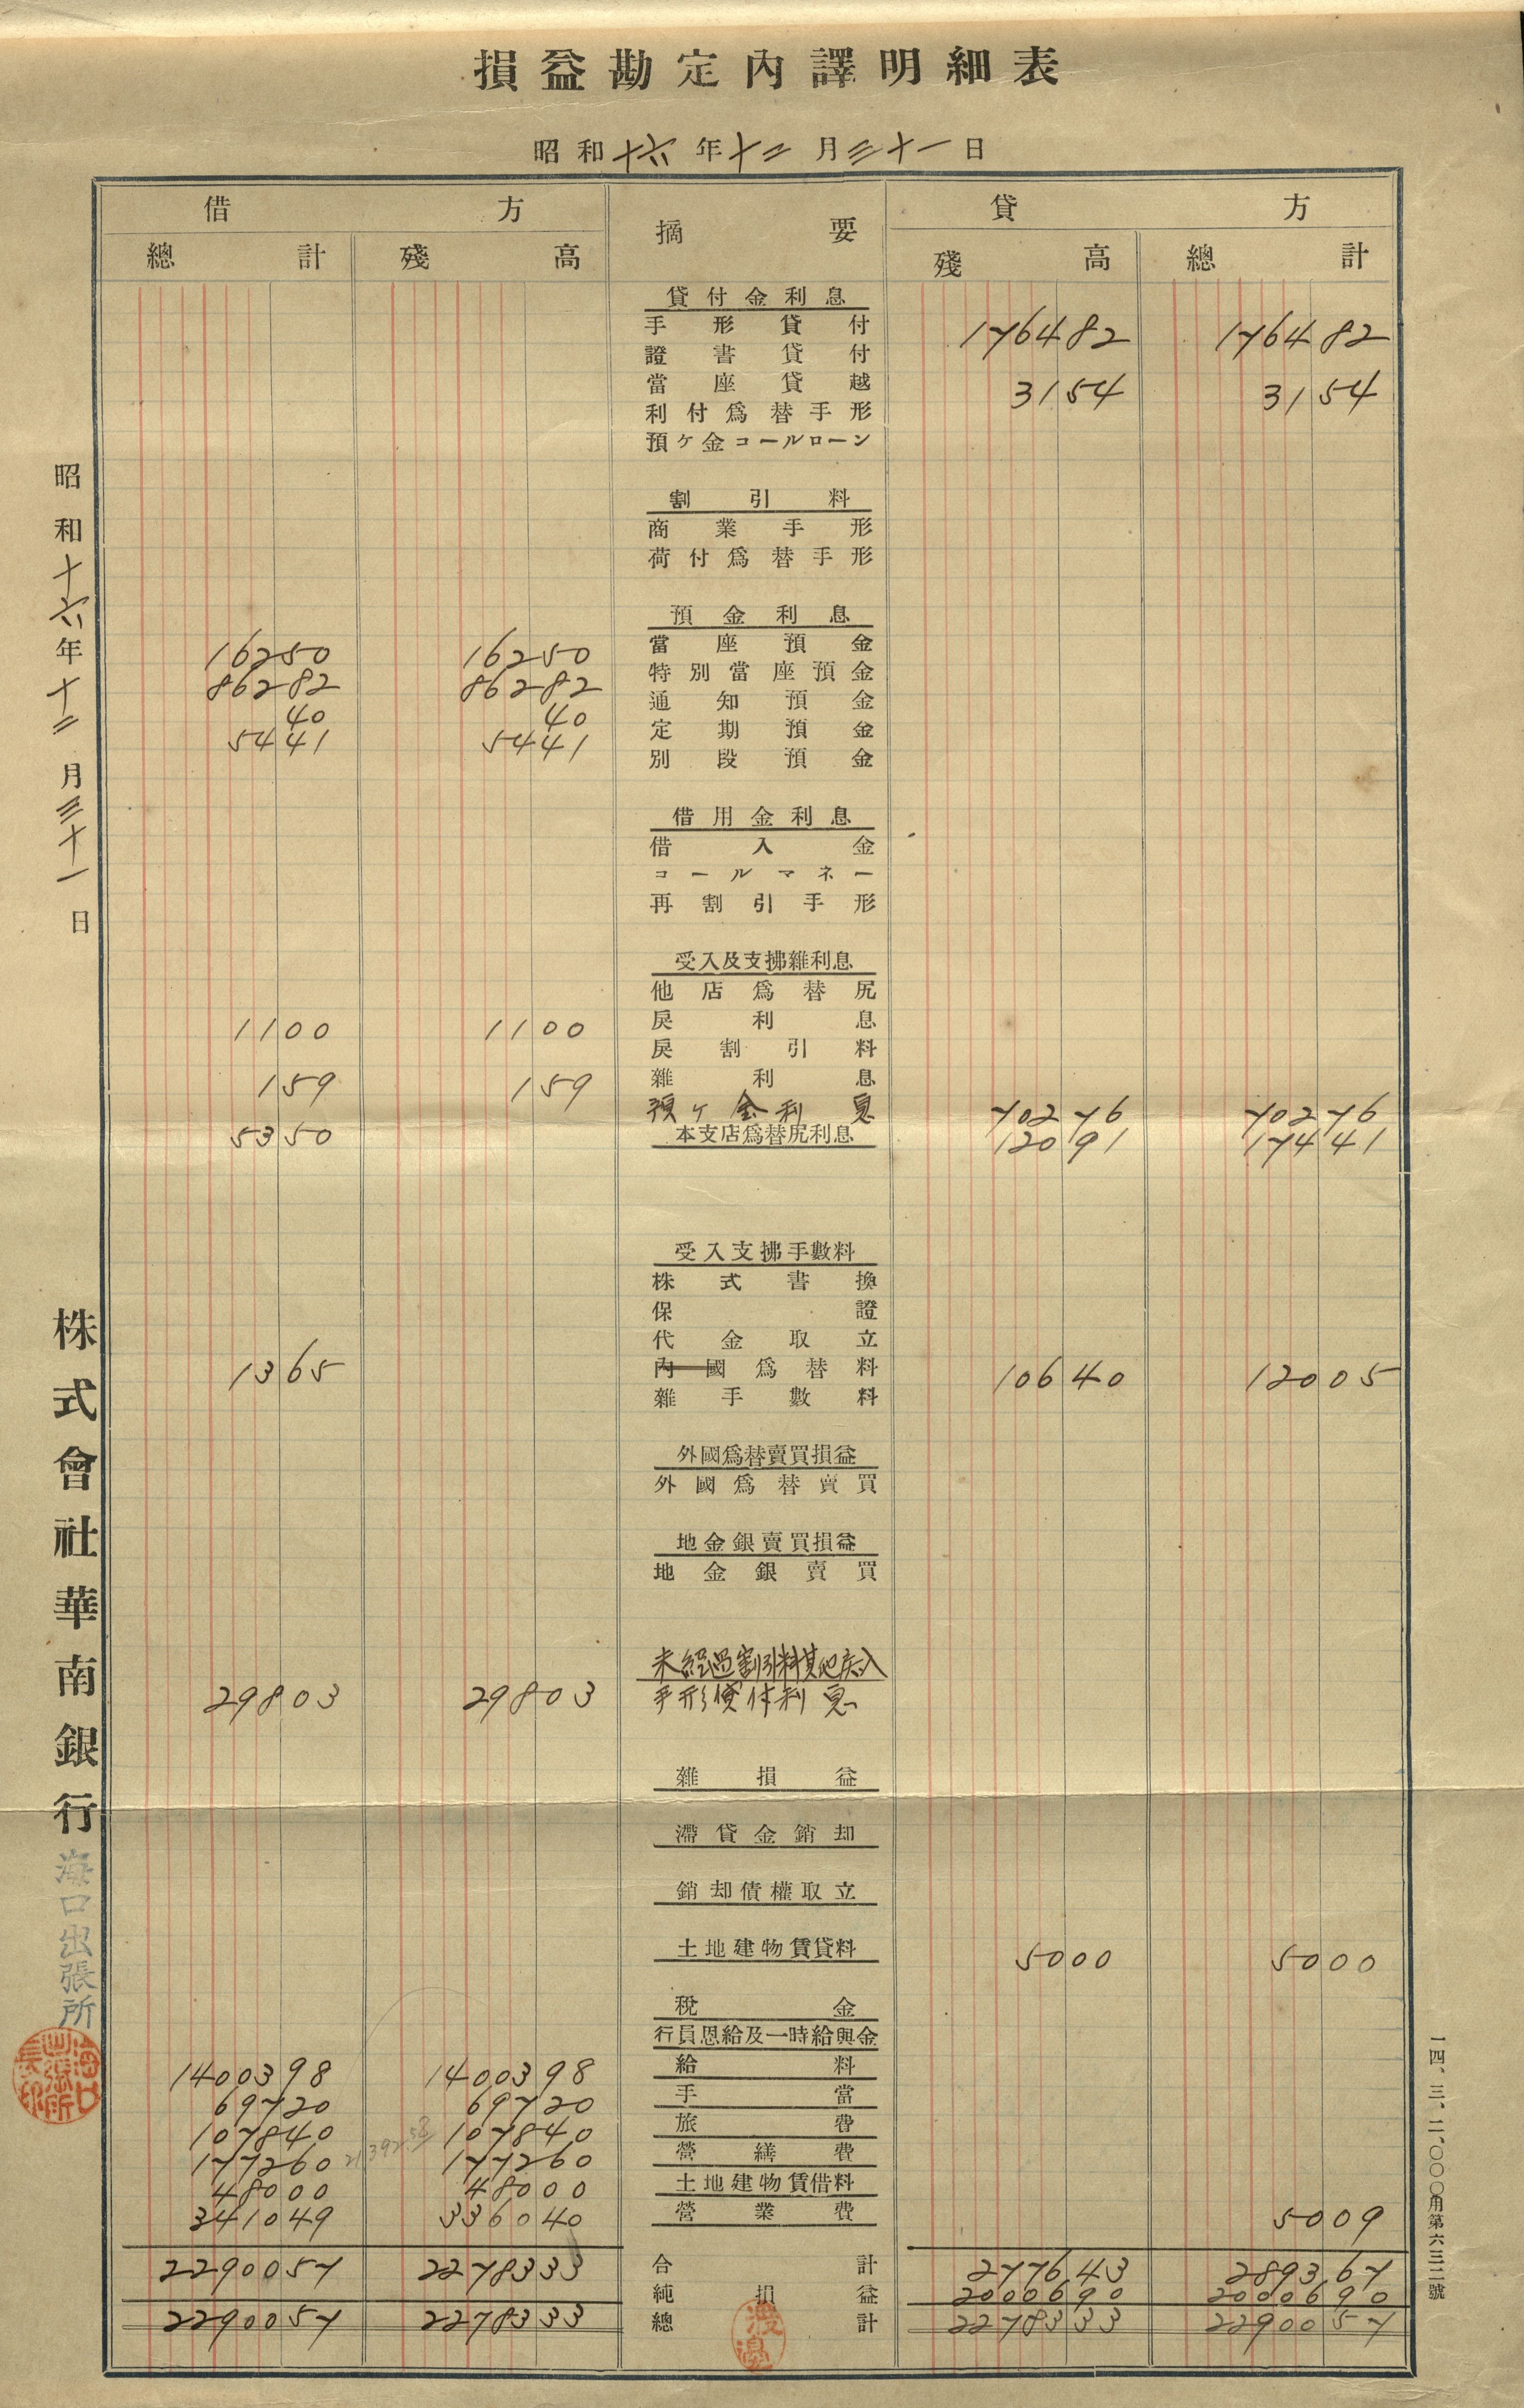 損益勘定內譯明細表
昭和十六年十二月三十一日
借方 摘要 貸方
總計 殘高 殘高 總計
貸付金利息
手形貸付 176482 176482
證書貸付
當座貸越 3154 3154
利付爲替手形
預ケ金コールローン
割引料
商業手形
荷付爲替手形
預金利息
16250 16250 當座預金
86282 86282 特別當座預金
40 40 通知預金
5441 5441 定期預金
別段預金
借用金利息
借入金
コールマネー
再割引手形
受入及支拂雜利息
他店爲替尻
1100 1100 戾利息
戾割引料
159 159 雜利息
預ケ金利息 70276 70276
5350 本支店爲替尻利息 12091 17441
受入支拂手數料
株式書換
保證
代金取立
1365 內國爲替料 10640 12005
雜手數料
外國爲替賣買損益
外國爲替賣買
地金銀賣買損益
地金銀賣買
未經過割引料其他戾入
29803 29803 手形貸付利息
雜損益
滯貸金銷却
銷却債權取立
土地建物賃貸料 5000 5000
稅金
行員恩給及一時給與金
1400398 1400398 給料
69720 69720 手當
107840 107840 旅費
177260 177260 營繕費
48000 48000 土地建物賃借料
341049 336040 營業費 5009
2290057 2278333 合計 277643 289367
純損益 2000690 2000690
2290057 2278333 總計 2278333 2290057
昭和十六年十二月三十一日
株式會社華南銀行海口出張所
海口出張所長印
渡邊
一四、三、二、〇〇〇用第六三二號